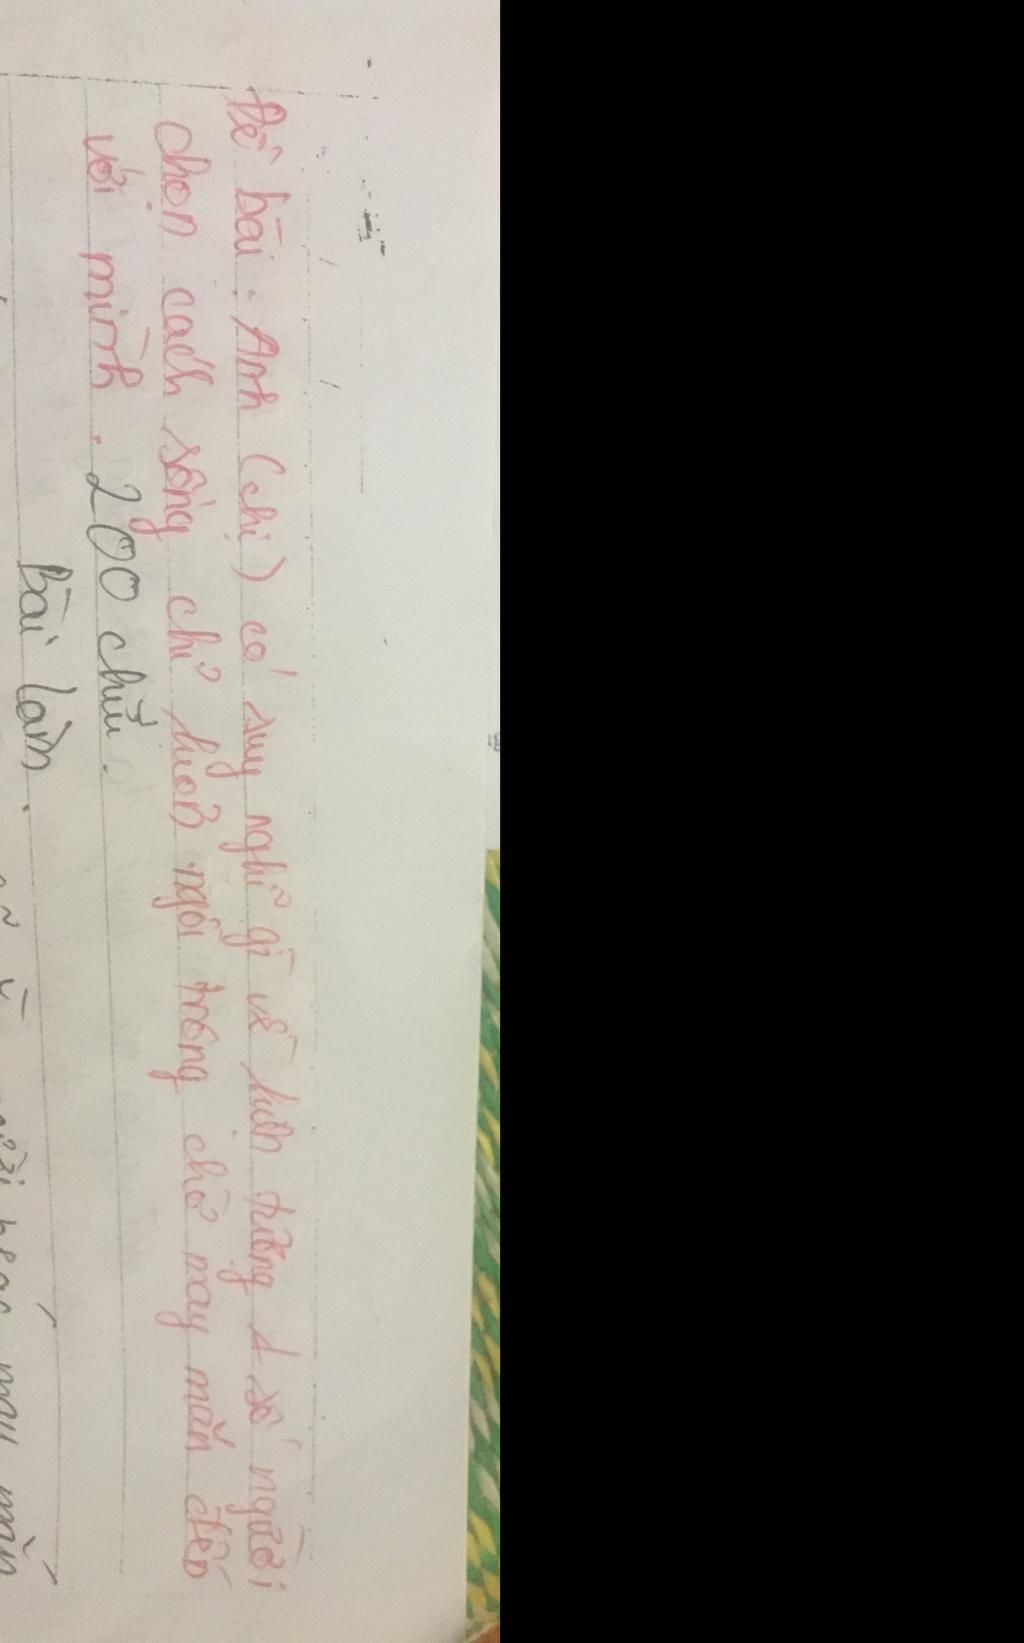 Đề bài: Anh (chị) có suy nghĩ gì về hiện tượng 1 số người
chọn cách sống chỉ luôn ngồi trông chờ may mắn đến
với mình. 200 chữ.
Bài làm.
may mắn